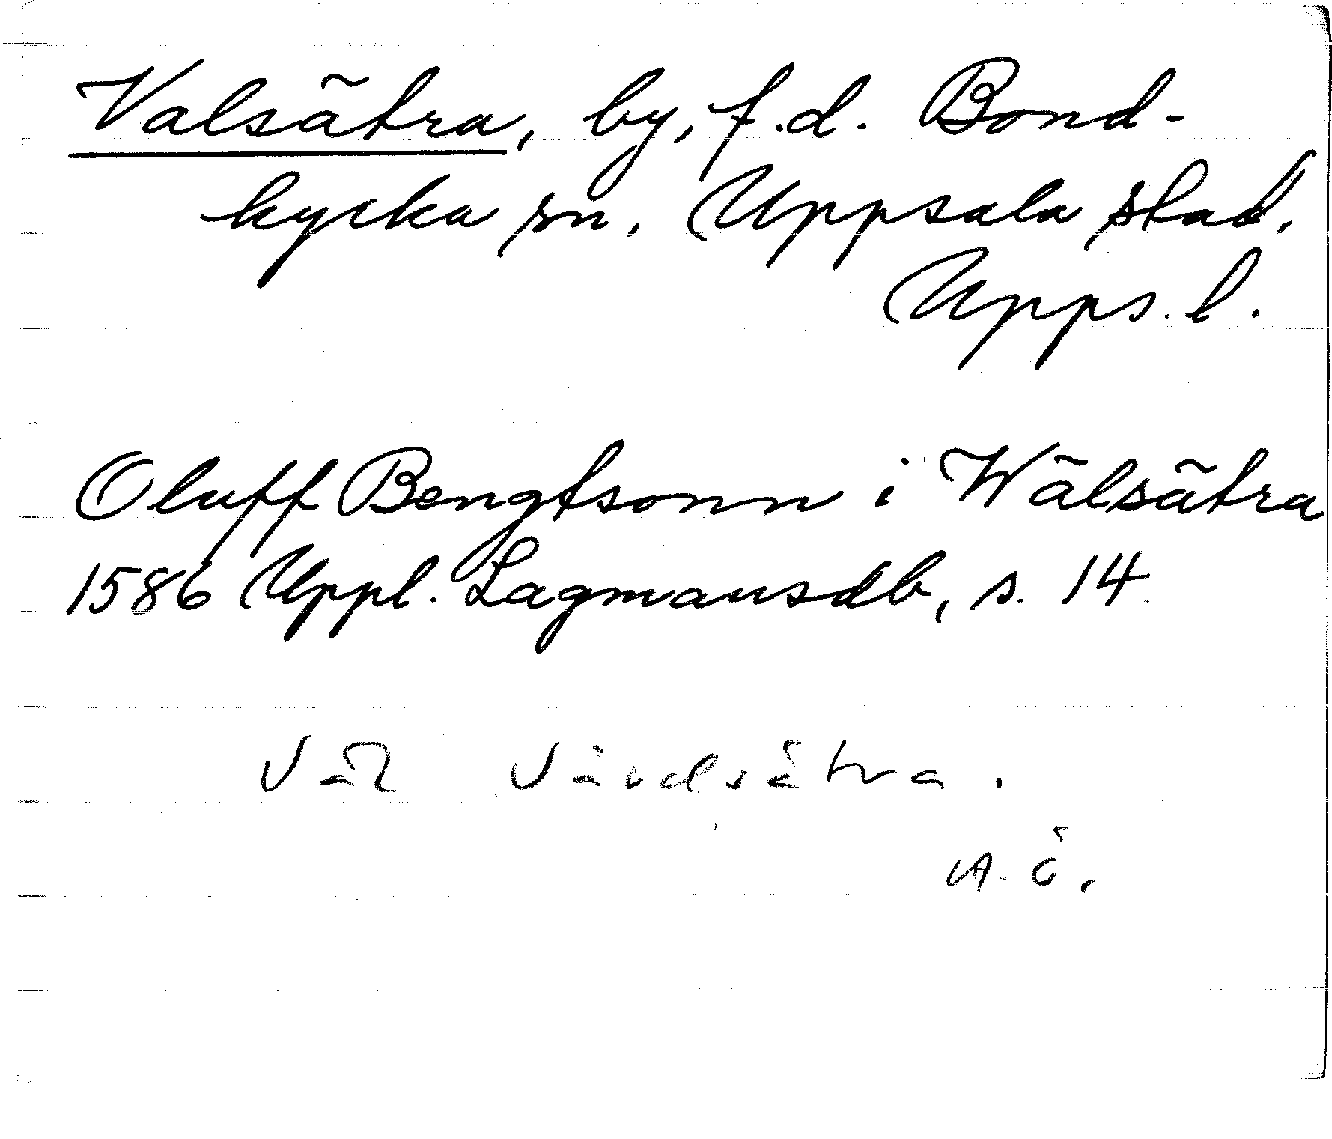 Valsätra, by, f.d. Bond-
kyrka sn. Uppsala stad.
Upps. l.
Oluff Bengtsonn i Wälsätra
1586 Uppl. Lagmansdb, s. 14
Väl Vårdsätra.
A. Ö.